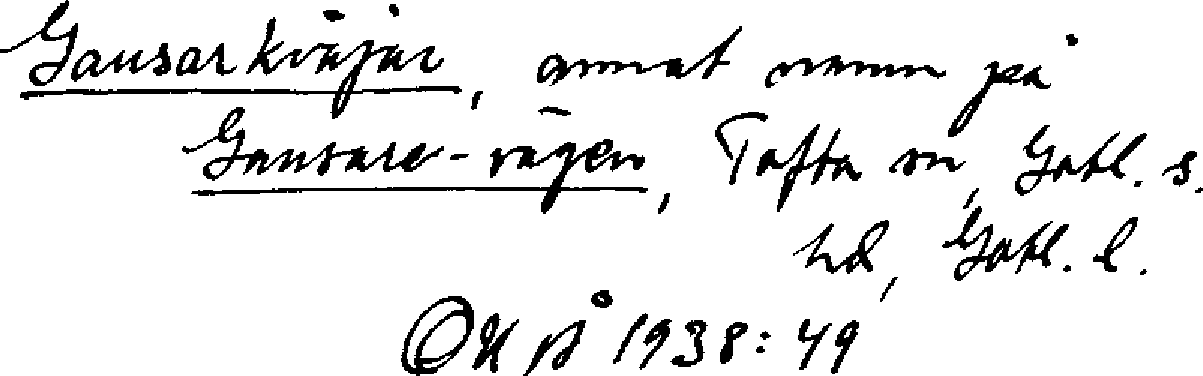 Gausarkväjär, annat namn på
Gausare-vägen, Tofta sn, Gotl. s.
hd, Gotl. l.
1938: 49